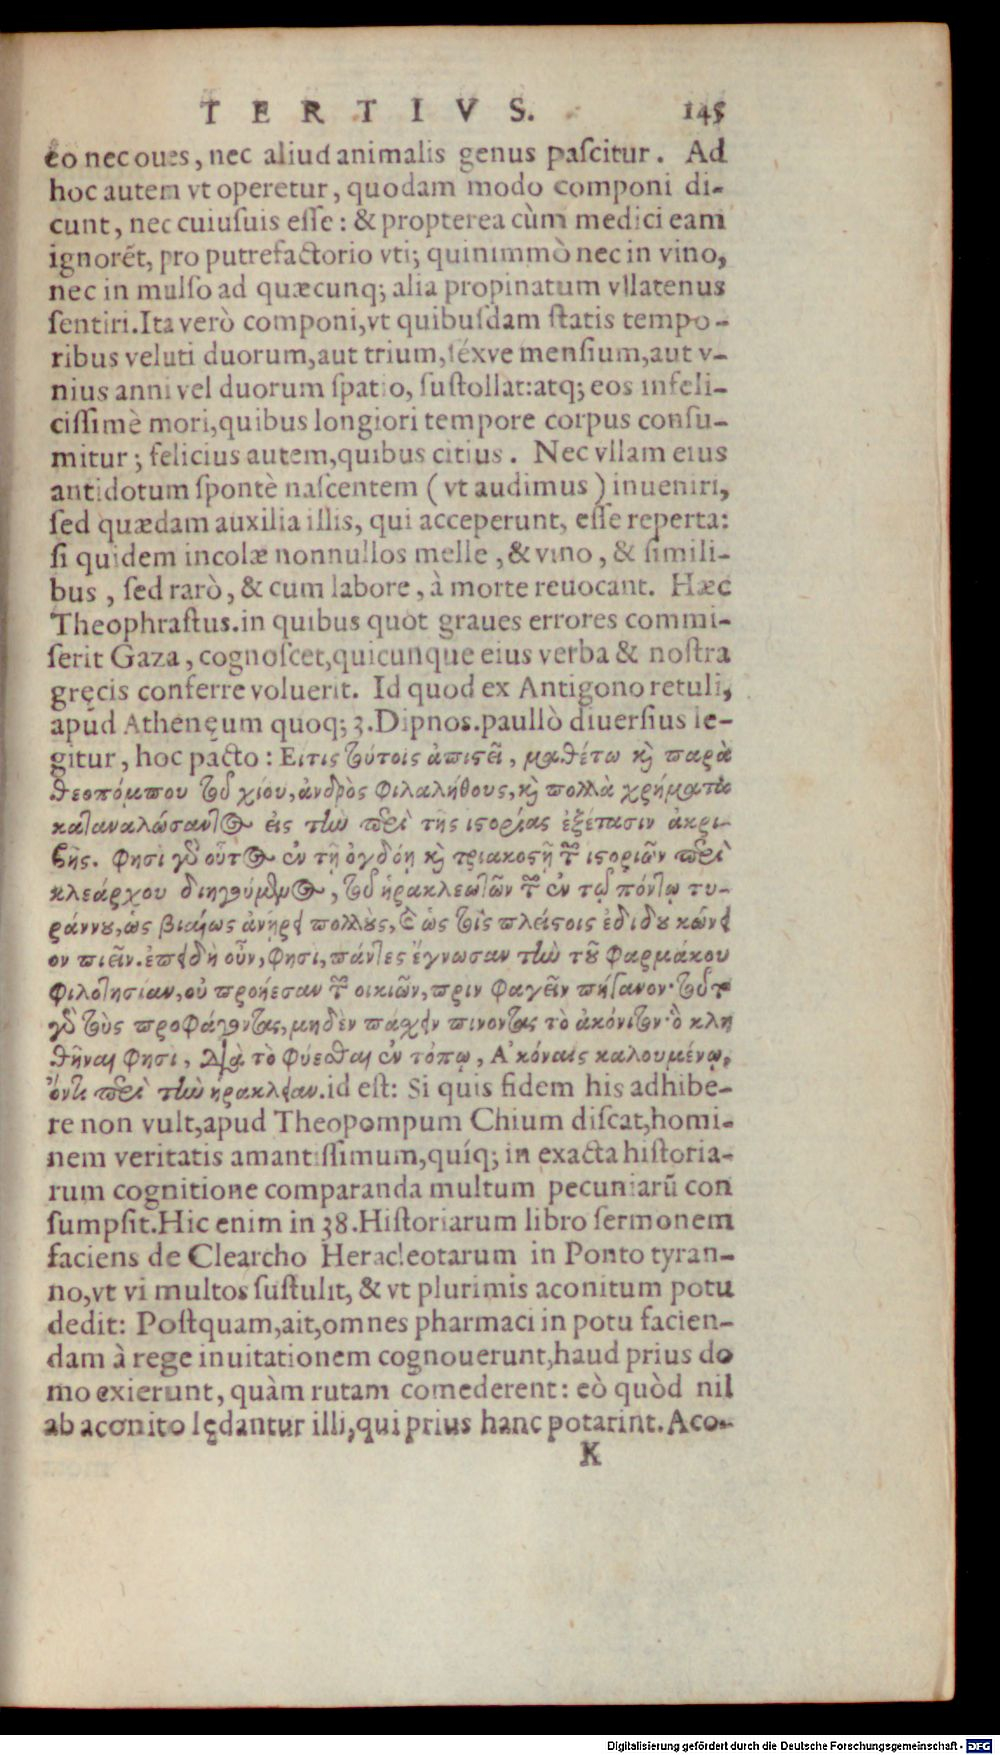 TERTIVS. 145
eo nec oues, nec aliud animalis genus pascitur. Ad
hoc autem vt operetur, quodam modo componi di-
cunt, nec cuiusuis esse: & propterea cùm medici eam
ignorẽt, pro putrefactorio vti; quinimmò nec in vino,
nec in mulso ad quæcunq; alia propinatum vllatenus
sentiri. Ita verò componi, vt quibusdam statis tempo-
ribus veluti duorum, aut trium, séxve mensium, aut v-
nius anni vel duorum spatio, sustollat: atq; eos infeli-
cissimè mori, quibus longiori tempore corpus consu-
mitur; felicius autem, quibus citius. Nec vllam eius
antidotum spontè nascentem (vt audimus) inueniri,
sed quædam auxilia illis, qui acceperunt, esse reperta:
si quidem incolæ nonnullos melle, & vino, & simili-
bus, sed rarò, & cum labore, à morte reuocant. Hæc
Theophrastus. in quibus quot graues errores commi-
serit Gaza, cognoscet, quicunque eius verba & nostra
gręcis conferre voluerit. Id quod ex Antigono retuli,
apud Athenęum quoq; 3. Dipnos. paullò diuersius le-
gitur, hoc pacto: Εἰτις τούτοις ἀπιστεῖ, μαθέτω καὶ παρὰ
θεοπόμπου τοῦ χίου, ἀνδρὸς φιλαλήθους, καὶ πολλὰ χρήματα
καταναλώσαντος εἰς τὴν περὶ τῆς ἱστορίας ἐξέτασιν ἀκρι-
βῆς. φησὶ γὰρ οὗτος ἐν τῇ ὀγδόῃ καὶ τριακοστῇ τῶν ἱστοριῶν περὶ
κλεάρχου διηγούμενος, τοῦ ἡρακλεωτῶν τῶν ἐν τῷ πόντῳ τυ-
ράννου, ὡς βιαίως ἀνῄρει πολλοὺς, καὶ ὡς τοῖς πλείστοις ἐδίδου κώνει
ον πιεῖν. ἐπειδὴ οὖν, φησι, πάντες ἔγνωσαν τὴν τοῦ φαρμάκου
φιλοτησίαν, οὐ προῄεσαν τῶν οἰκιῶν, πρὶν φαγεῖν πήγανον· τοῦτο
γὰρ τοὺς προφάγοντας, μηδὲν πάσχειν πίνοντας τὸ ἀκόνιτον· ὃ κλη
θῆναι φησι, διὰ τὸ φύεσθαι ἐν τόπῳ, Ἀκόναις καλουμένῳ,
ὄντι περὶ τὴν ἡράκλειαν. id est: Si quis fidem his adhibe-
re non vult, apud Theopompum Chium discat, homi-
nem veritatis amantissimum, quíq; in exacta historia-
rum cognitione comparanda multum pecuniarũ con
sumpsit. Hic enim in 38. Historiarum libro sermonem
faciens de Clearcho Heracleotarum in Ponto tyran-
no, vt vi multos sustulit, & vt plurimis aconitum potu
dedit: Postquam, ait, omnes pharmaci in potu facien-
dam à rege inuitationem cognouerunt, haud prius do
mo exierunt, quàm rutam comederent: eò quòd nil
ab aconito lędantur illi, qui prius hanc potarint. Aco-
K
Digitalisierung gefördert durch die Deutsche Forschungsgemeinschaft - DFG